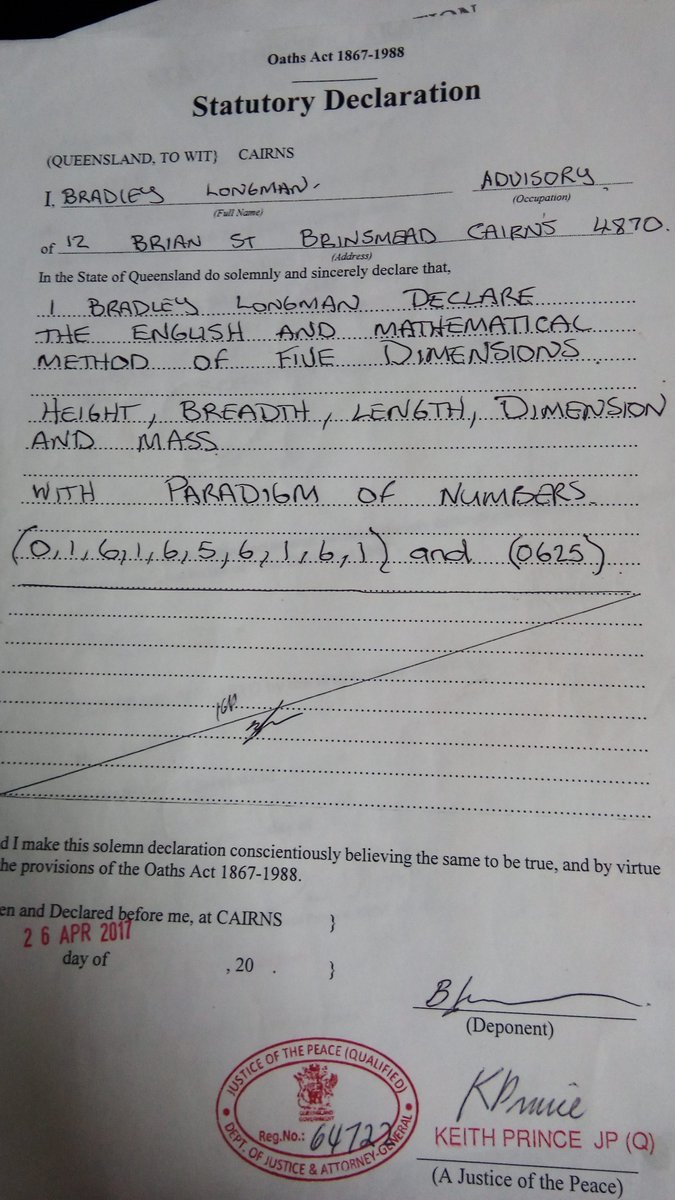 Oaths Act 1867-1988
Statutory Declaration
(QUEENSLAND, TO WIT} CAIRNS
I, BRADLEY LONGMAN. ADVISORY.
(Full Name) (Occupation)
of 12 BRIAN ST BRINSMEAD CAIRNS 4870.
(Address)
In the State of Queensland do solemnly and sincerely declare that,
I BRADLEY LONGMAN DECLARE
THE ENGLISH AND MATHEMATICAL
METHOD OF FIVE DIMENSIONS
HEIGHT, BREADTH, LENGTH, DIMENSION
AND MASS
WITH PARADIGM OF NUMBERS.
(0,1,6,1,6,5,6,1,6,1) and (0625)
d I make this solemn declaration conscientiously believing the same to be true, and by virtue
he provisions of the Oaths Act 1867-1988.
en and Declared before me, at CAIRNS }
26 APR 2017
day of , 20 . }
(Deponent)
JUSTICE OF THE PEACE (QUALIFIED)
QUEENSLAND
GOVERNMENT
Reg.No.: 64722
DEPT. OF JUSTICE & ATTORNEY-GENERAL
KPrince
KEITH PRINCE JP (Q)
(A Justice of the Peace)